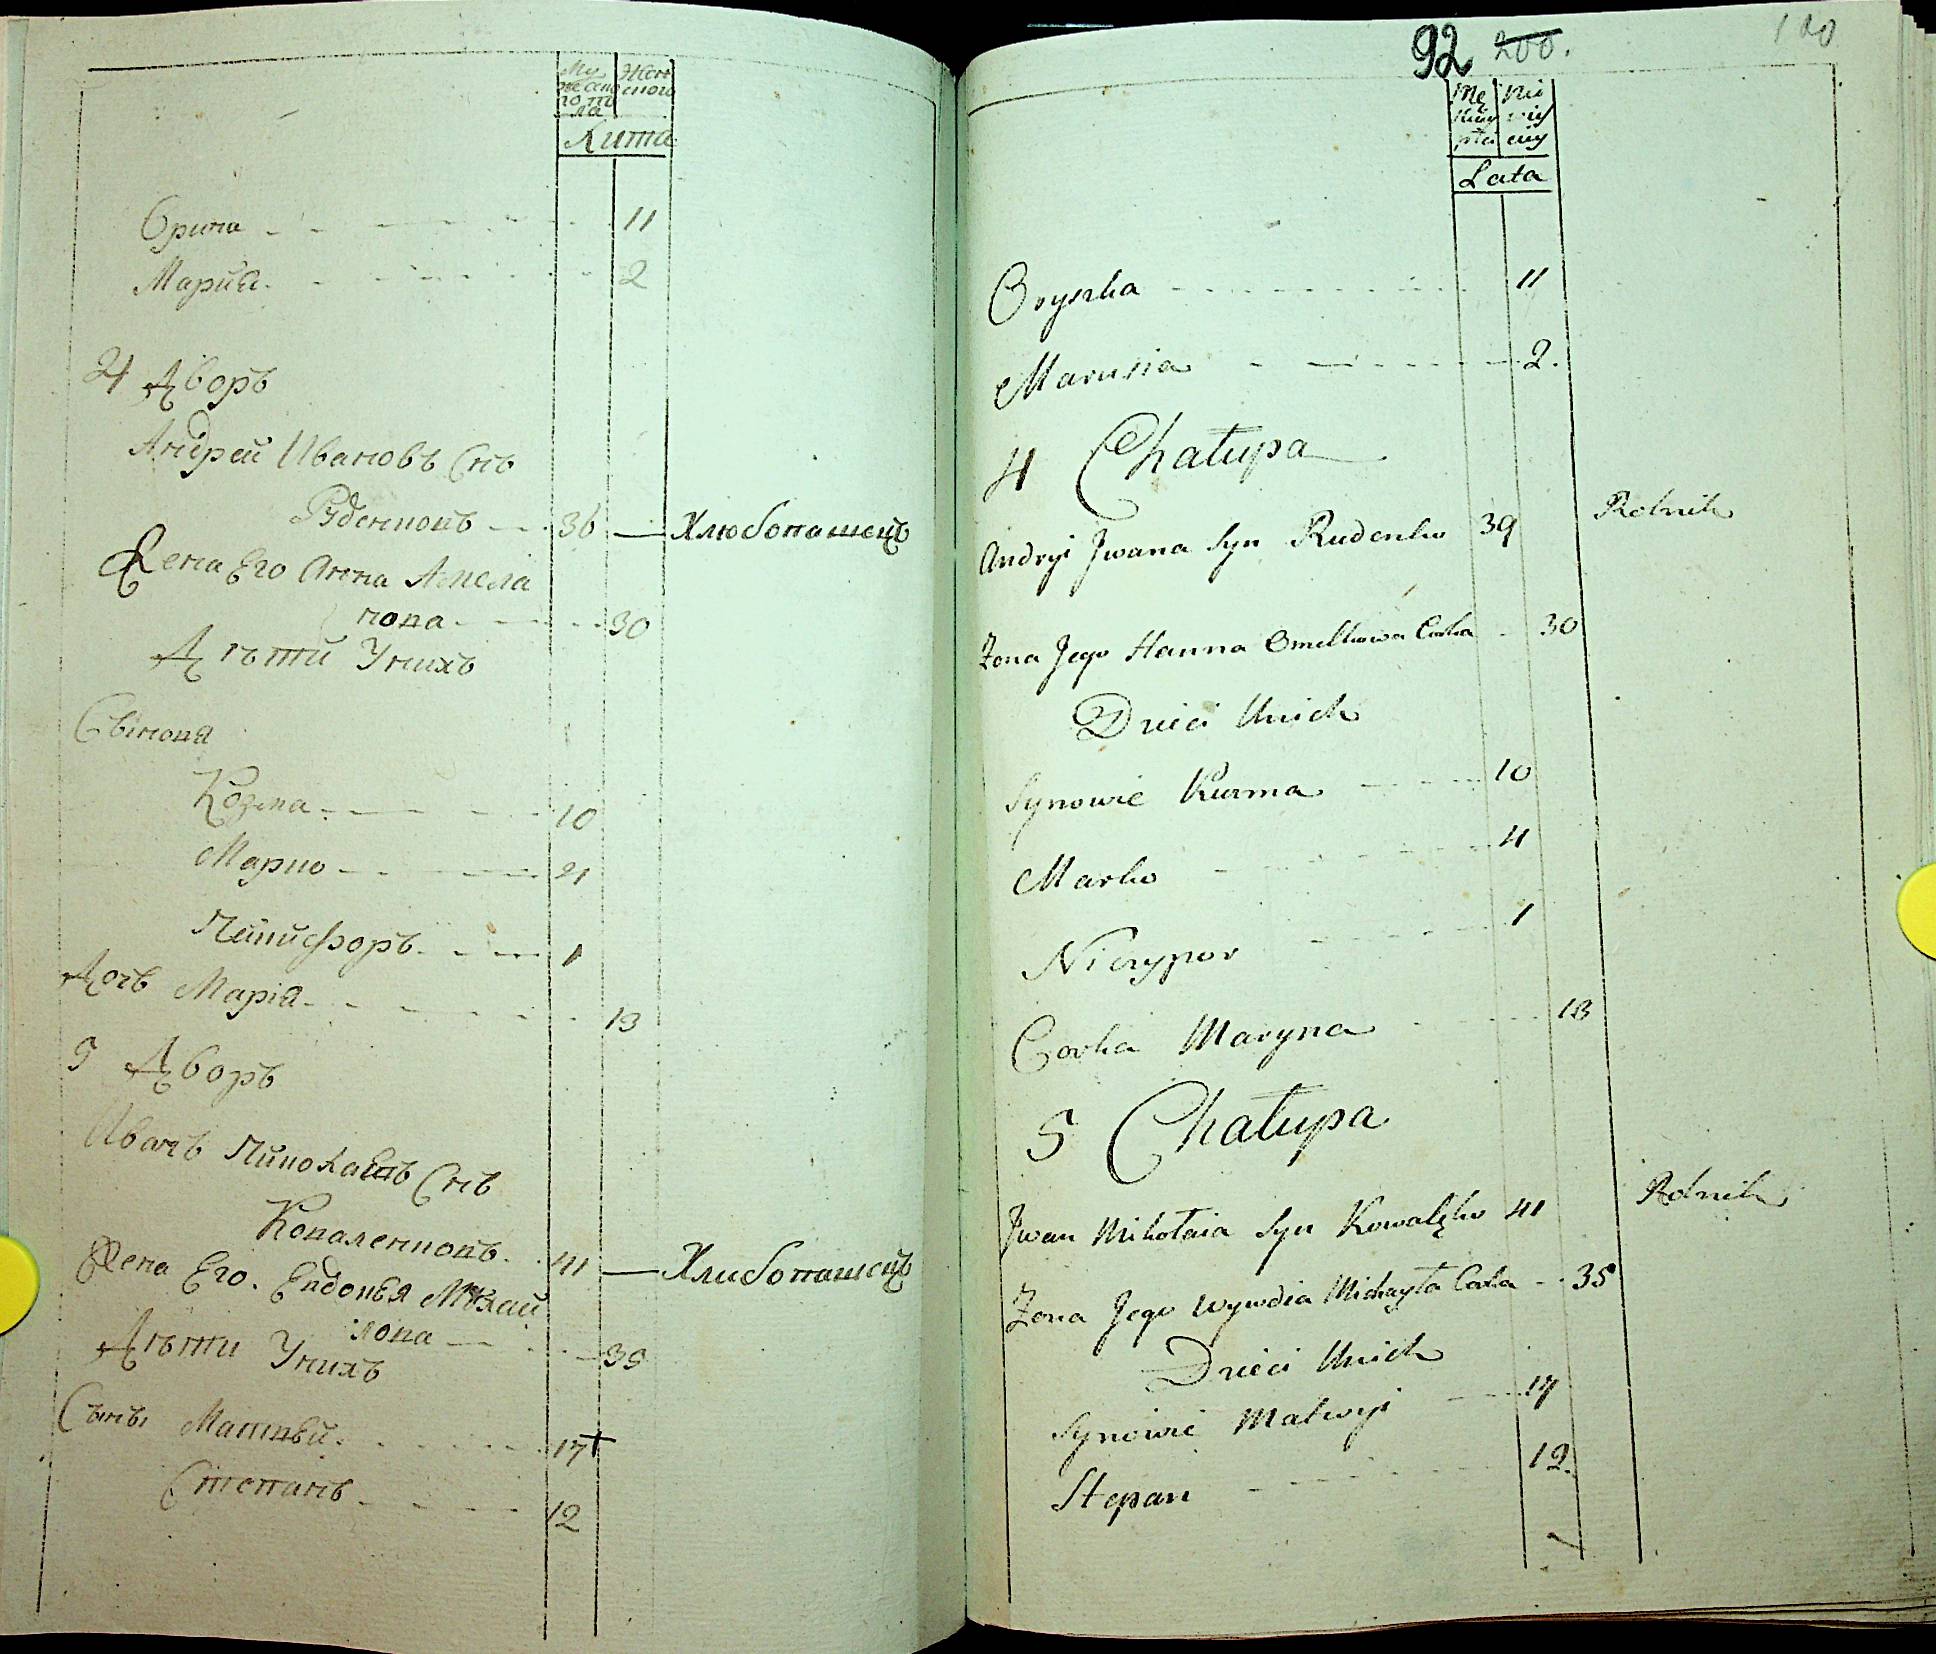 Му
жеско
го по
ла
Жен
ского
Лита
Орина 11
Марйя 2
4 Дворъ
Андрей Ивановъ Снъ
Руденкокъ 36 Хлюбопашецъ
Жена Его Анна Амела
нова 30
Дъти Унихъ
Сѣновя
Козма 10
Марко 4
Никифоръ 1
Дочъ Марія 13
5 Дворъ
Иванъ Николаевъ Снъ
Коваленкокъ 41 Хлибопашецъ
Жена Его Евдокѣя Михай
лова 35
Дъти Унихъ
Сыны Матвѣй 17 †
Степанъ 12
92 200. 100
Lata
Oryszka 11
Marusia 2.
4 Chałupa
Andryi Jwana Syn Rudenko 39 Rolnik
Zona Jego Hanna Omelkowa Corka 30
Dzieci Unich
Synowie Kuzma 10
Marko 4
Niczypor 1
Corka Maryna 13
5 Chałupa
Jwan Mikołaia Syn Kowalęko 41 Rolnik
Zona Jego Wywdia Michayła Corka 35
Dzieci Unich
Synowie Matwyi 17
Stepan 12.